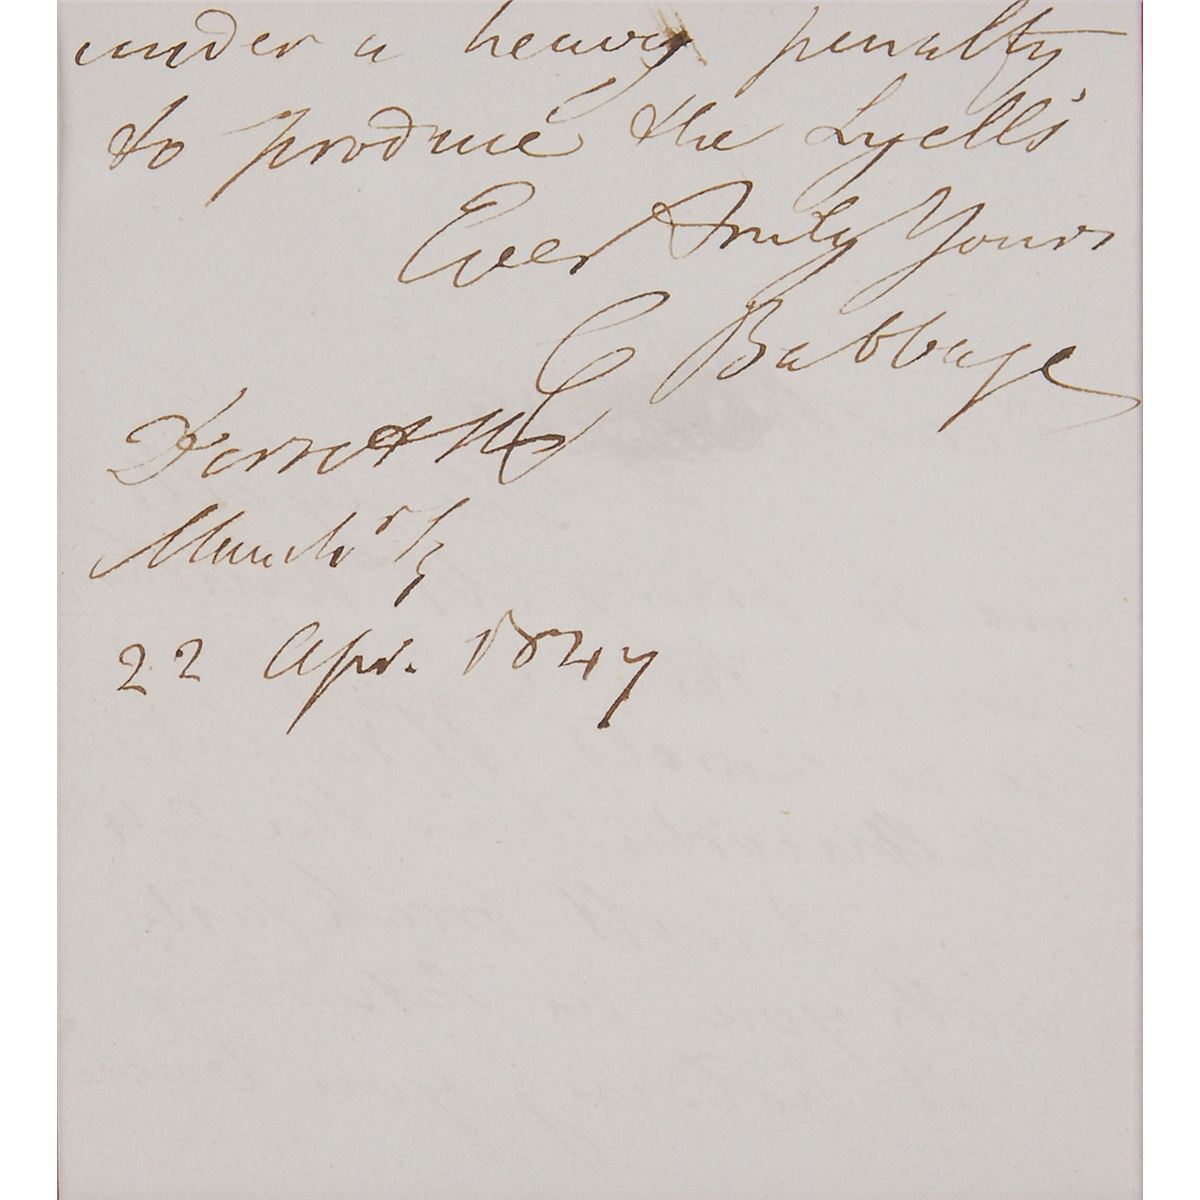 under a heavy penalty
to produce the Lyells
Ever Truly Yours
C Babbage
Dorset St
Manch. Sq
22 Apr. 1847